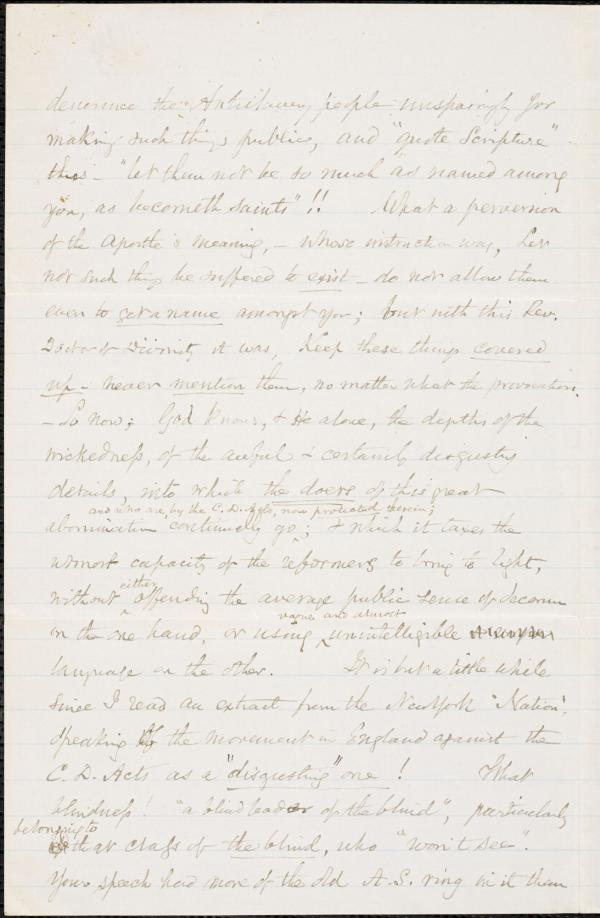 denounce the Antislavery people unsparingly for
making such "things public, and "quote Scripture"
this - "let them not be so much as named among
you, as becometh saints"!! What a perversion
of the Apostle's meaning, - whose instruction was, Let
not such things be suffered to exist - do not allow them
even to get a name amongst you; but with this Rev.
Doctor of Divinity it was, Keep these things covered
up - never mention them, no matter what the provocation.
- So now; God knows, & He alone, the depths of the
wickedness, of the awful & certainly disgusting
details, into which the doers of this great
and who are, by the C. D. Acts, now protected therein;
abomination continually go; & which it taxes the
utmost capacity of the reformers to bring to light,
without either offending the average public sense of decorum
on the one hand, or using vague and almost unintelligible
language on the other. It is but a little while
since I read an extract from the New York "Nation",
speaking of the movement in England against the
C. D. Acts as a "disgusting" one! What
blindness! "a blind leader of the blind", particularly
belonging to
that class of the blind, who "won't see".
Your speech had more of the old A. S. ring in it than